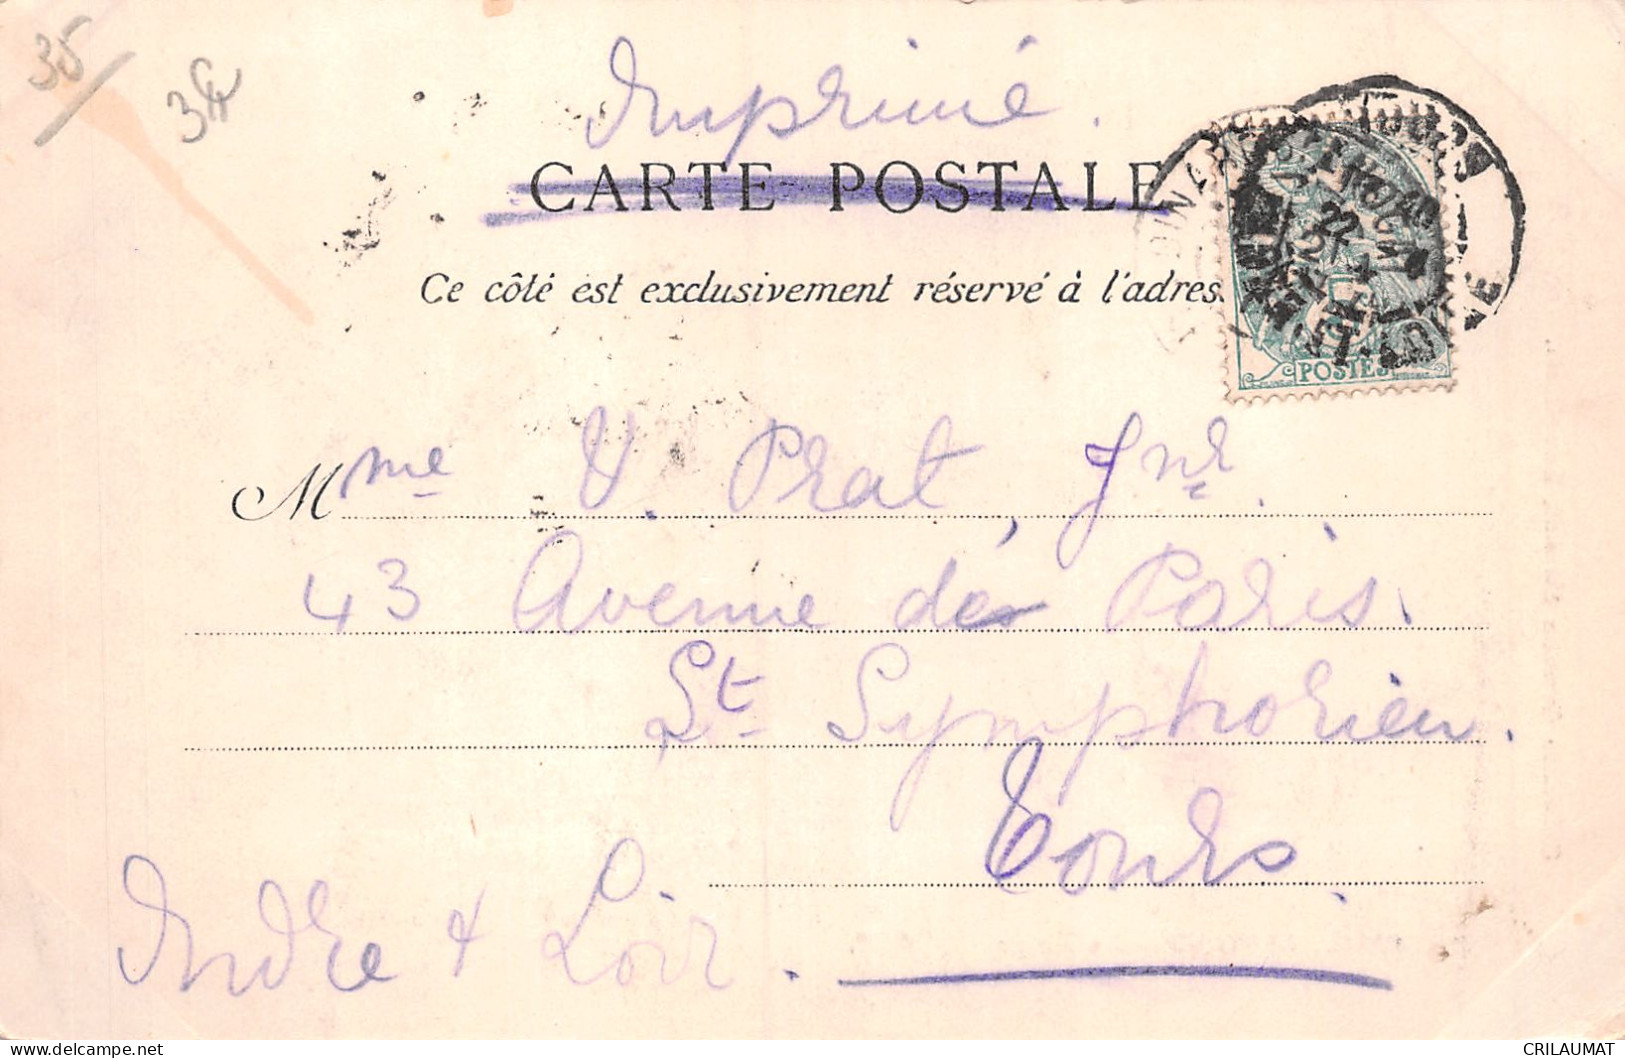 35
Imprimé.
CARTE POSTALE
Ce côté est exclusivement réservé à l'adres
TOURS
22
POSTES
Mme V. Prat, Jnr.
43 Avenue de Paris.
St Symphorien.
Tours.
Indre & Loir.
CRILAUMAT